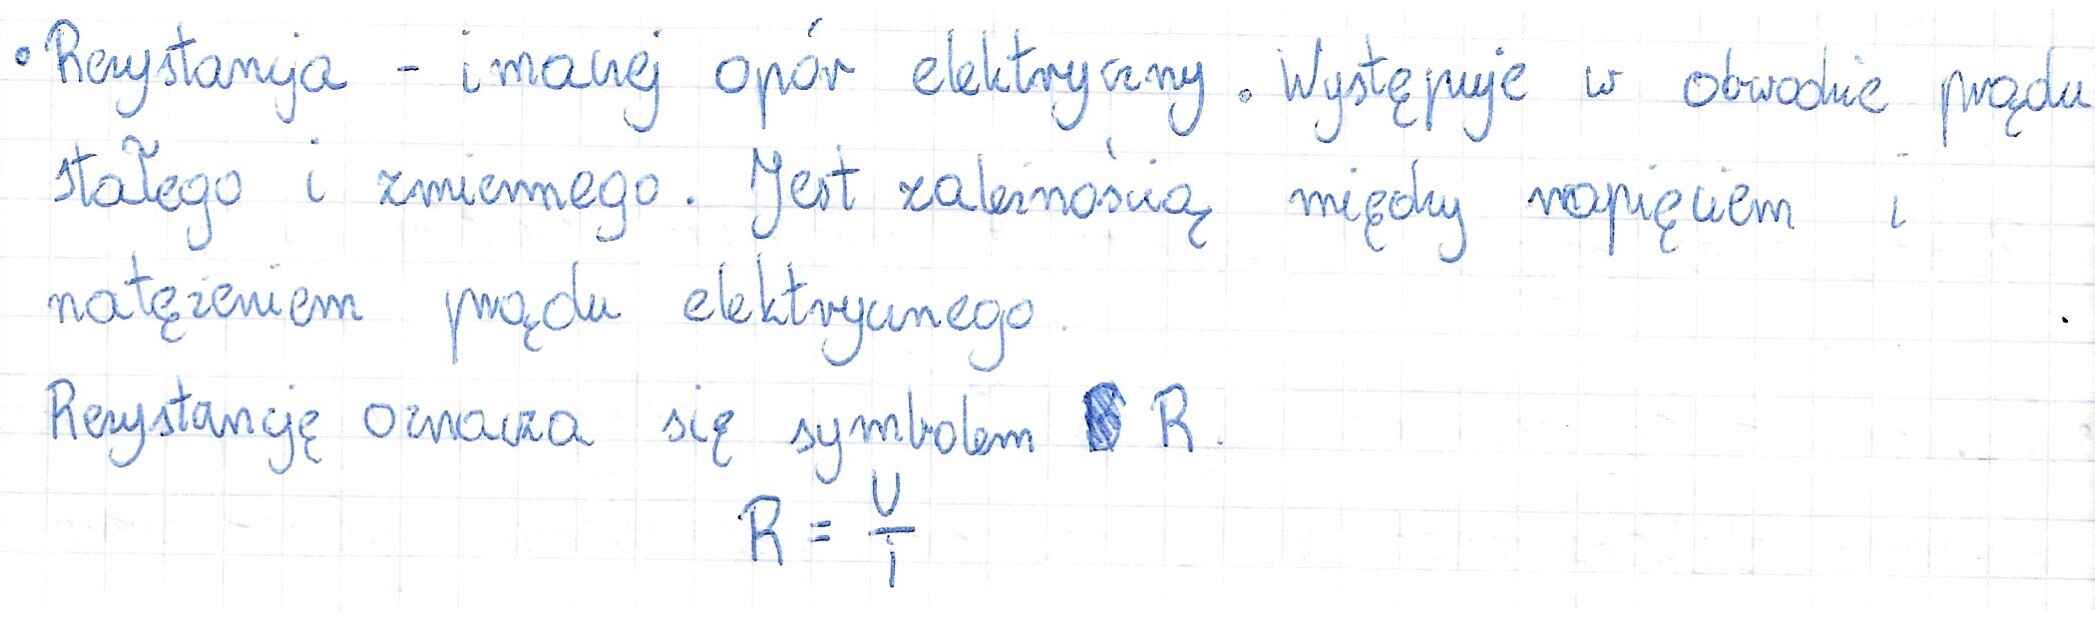 • Rezystancja - inaczej opór elektryczny. Występuje w obwodzie prądu
stałego i zmiennego. Jest zależnością między napięciem i
natężeniem prądu elektrycznego.
Rezystancję oznacza się symbolem R.
R = U/I